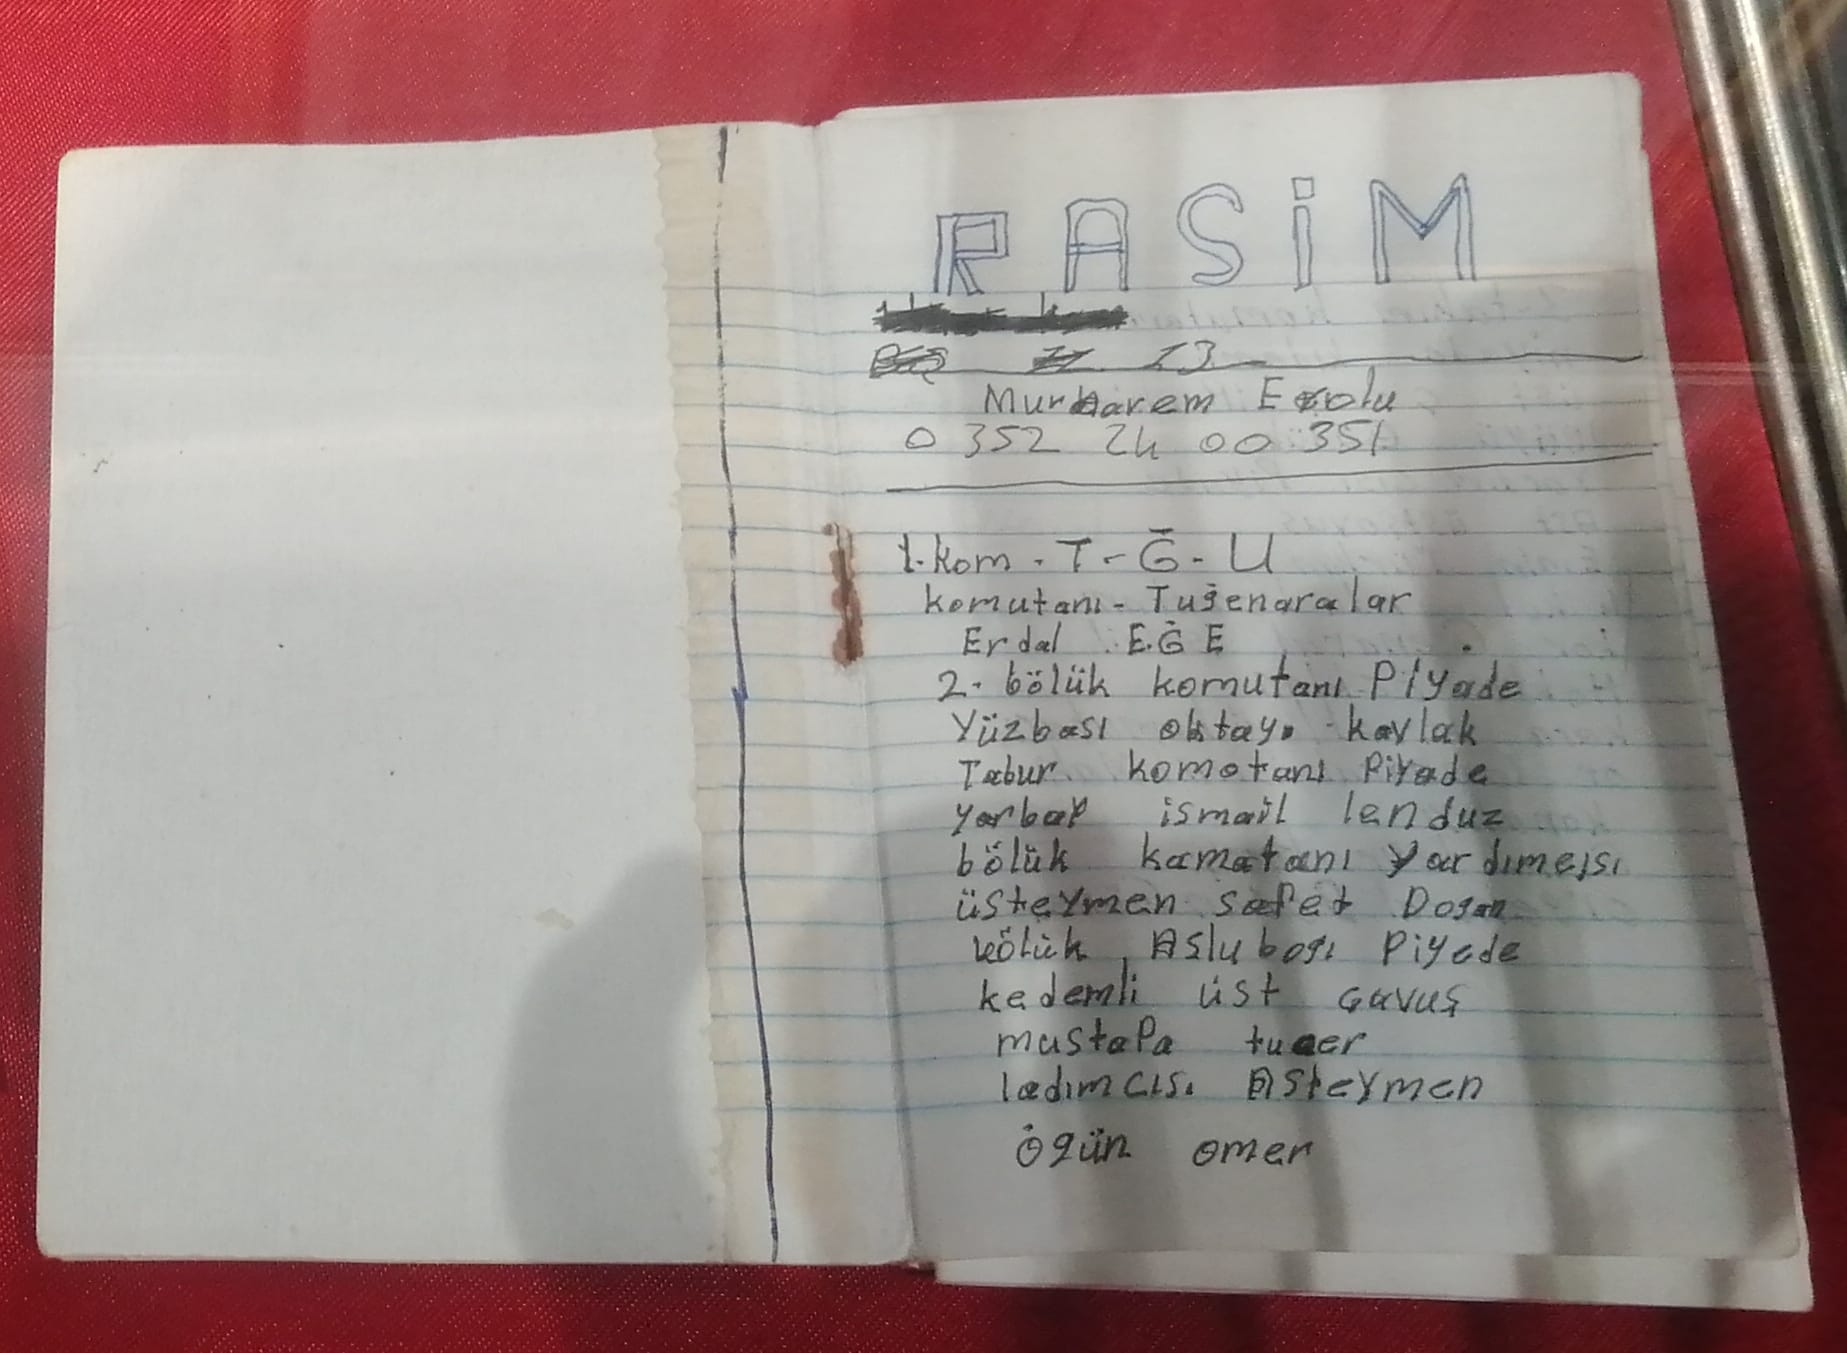 RASİM
13
Murharem Erolu
0 352 24 00 351
1.kom - T - Ğ - U
komutanı - Tuğenaralar
Erdal EĞE
2. bölük komutanı Piyade
Yüzbası oktay kavlak
Tabur komotanı Piyade
yarbay ismail lenduz
bölük kamatanı yardımcısı
üsteymen safet Dogan
bölük Aslubogı Piyede
kedemli üst çavuş
mustafa tucer
ladımcısı Asteymen
ögün omer